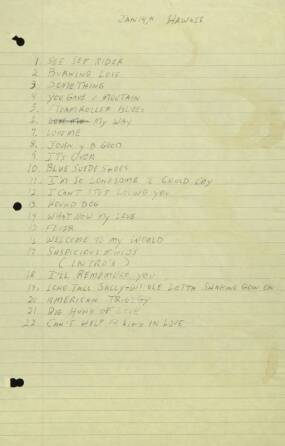 HAWAII
1. SEE SEE RIDER
2. BURNING LOVE
3. SOMETHING
4. YOU GAVE A MOUNTAIN
5. STEAMROLLER BLUES
6. LOVE ME MY WAY
7. LOVE ME
8. JOHNY B GOOD
9. IT'S OVER
10. BLUE SUEDE SHOES
11. I'M SO LONESOME I COULD CRY
12. I CAN'T STOP LOVING YOU
13. HOUND DOG
14. WHAT NOW MY LOVE
15. FEVER
16. WELCOME TO MY WORLD
17. SUSPICIOUS MINDS
(INTRO'S)
18. I'LL REMEMBER YOU
19. LONG TALL SALLY-WHOLE LOTTA SHAKING GOIN ON
20. AMERICAN TRILOGY
21. BIG HUNK OF LOVE
22. CAN'T HELP FALLING IN LOVE